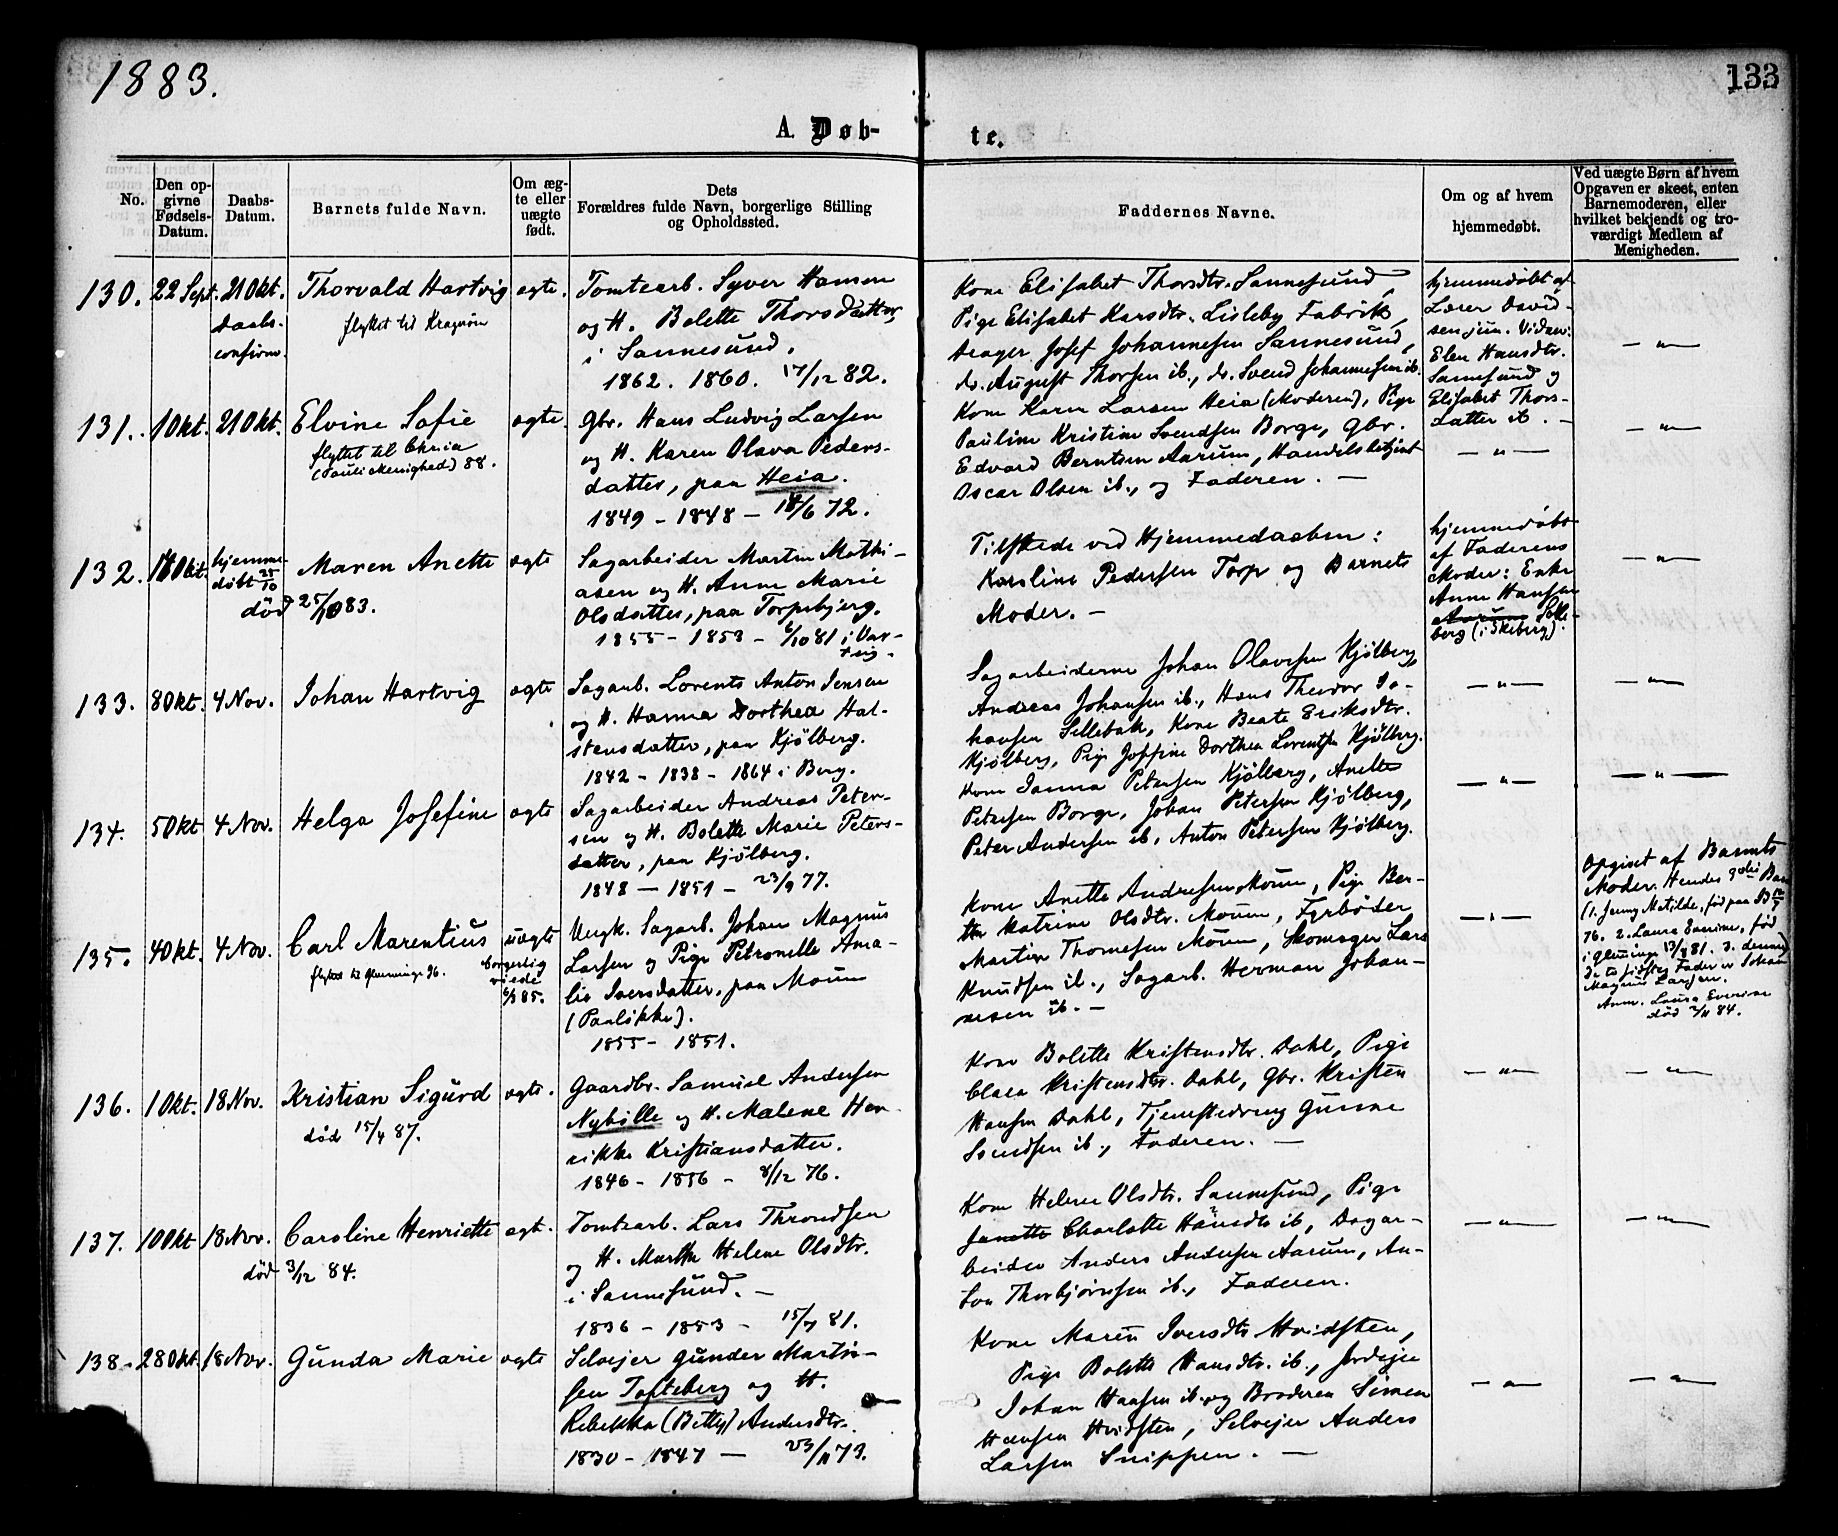 1883.
133
A. Døb-
te.
No.
Den op-
givne
Fødsels-
Datum.
Daabs-
Datum.
Barnets fulde Navn.
Om æg-
te eller
uægte
født.
Dets
Forældres fulde Navn, borgerlige Stilling
og Opholdssted.
Faddernes Navne.
Om og af hvem
hjemmedøbt.
Ved uægte Børn af hvem
Opgaven er skeet, enten
Barnemoderen, eller
hvilket bekjendt og tro-
værdigt Medlem af
Menigheden.
130. 22 Sept. 21 Okt. Thorvald Hartvig ægte.
daabs-
confirm.
flyttet til Kragerøen
Tomtearb. Syver Hansen
og H. Bolette Thorsdatter,
i Sannesund.
1862. 1860. 17/12 82.
Kone Elisabet Thorsdtr. Sannesund,
Pige Elisabet Larsdtr. Lisleby Fabrik,
Drager Josef Johannesen Sannesund,
dr. August Thorsen ib., dr. Svend Johannesen ib.
hjemmedøbt af
Lærer David-
sen jun. Vidner:
Elen Hansdtr.
Sannesund og
Elisabet Thors-
datter ib. -
— " —
131. 1 Okt. 21 Okt. Elvine Sofie ægte.
flyttet til Chria
(Pauli Menighed) 88.
Gbr. Hans Ludvig Larsen
og H. Karen Olava Peders-
datter, paa Heia.
1849 - 1848 - 18/6 72.
Kone Karen Larsen Heia (Moderen), Pige
Pauline Kristine Svendsen Borge, Gbr.
Edvard Berntsen Aarum, Handelsbetjent
Oscar Olsen ib., og Faderen. —
— " —
— " —
132. 16 Okt. hjemme-
døbt 25/10
Maren Anette ægte
død 25/10 83.
Sagarbeider Martin Mathi-
asen og H. Anne Marie
Olsdatter, paa Torpebjerg.
1855 - 1853 - 6/10 81 i Var-
teig.
Tilstede ved Hjemmedaaben:
Karoline Pedersen Torp og Barnets
Moder. —
hjemmedøbt
af Faderens
Moder: Enke
Anne Hansen
Aarum Solle-
berg (i Skeberg).
— " —
133. 8 Okt. 4 Nov. Johan Hartvig ægte
Sagarb. Lorents Anton Jensen
og H. Hanna Dorthea Hal-
stensdatter, paa Kjølberg.
1842 - 1838 - 1864 i Berg.
Sagarbeiderne Johan Olavesen Kjølberg,
Andreas Johansen ib., Hans Theodor Jo-
hansen Sellebak, Kone Beate Eriksdtr.
Kjølberg, Pige Josefine Dorthea Lorentsen Kjølberg.
— " —
— " —
134. 5 Okt 4 Nov. Helga Josefine ægte
Sagarbeider Andreas Peter-
sen og H. Bolette Marie Peters-
datter, paa Kjølberg.
1848 — 1851 - 23/9 77.
Kone Janna Petersen Kjølberg, Anette
Petersen Borge, Johan Petersen Kjølberg,
Peter Andersen ib., Anton Petersen Kjølberg.
— " —
— " —
135. 4 Okt. 4 Nov. Carl Marentius uægte
flyttet til Glemminge 96.
borgerlig
viede
6/3 85.
Ungk. Sagarb. Johan Magnus
Larsen og Pige Petronelle Ama-
lie Iversdatter, paa Moum
(Paaløkke).
1855 - 1851.
Kone Anette Andresen Moum, Pige Ber-
the Katrine Olsdtr. Moum, Fyrbøder
Martin Thomesen Moum, Skomager Lars
Knudsen ib., Sagarb. Herman Johan-
nesen ib. —
— " —
Opgivet af Barnets
Moder. Hendes 3die Barn
(1. Jenny Matilde, fød paa
76. 2. Laura Eveline, fød
i Glemminge 13/8 81. 3. denne)
De to sidstes Fader er Johan
Magnus Larsen.
Anm. Laura Eveline
død 2/11 84.
136. 1 Okt. 18 Nov. Kristian Sigurd ægte.
død 15/4 87.
Gaardbr. Samuel Andersen
Nybølle og H. Malene Hen-
rikke Kristiansdatter.
1846 - 1856 - 8/12 76.
Kone Bolette Kristensdtr. Dahl, Pige
Claea Kristensdtr. Dahl, Gbr. Kristen
Hansen Dahl, Tjenestedreng Gunne
Svendsen ib., Faderen. —
— " —
— " —
137. 10 Okt 18 Nov. Caroline Henriette ægt.
død 3/12 84.
Tomtearb. Lars Throndsen
og H. Marthe Helene Olsdtr.
i Sannesund. —
1836 - 1853 - 15/7 81.
Kone Helene Olsdtr. Sannesund, Pige
Janette Charlotte Hansdtr ib., Dagar-
beider Anders Andersen Aarum, An-
ton Thorbjørnsen ib., Faderen.
— " —
— " —
138. 28 Okt. 18 Nov. Gunda Marie ægte
Selveier Gunder Martin-
sen Tofteberg og H.
Rebekka (Betty) Andersdtr.
1830 - 1847 — 23/11 73.
Kone Maren Iversdtr Hvidsten,
Pige Bolette Hansdtr. ib., Jordeier
Johan Hansen ib. og Broderen Simen
Hansen Hvidsten, Selveier Anders
Larsen Snippen. —
— " —
— " —